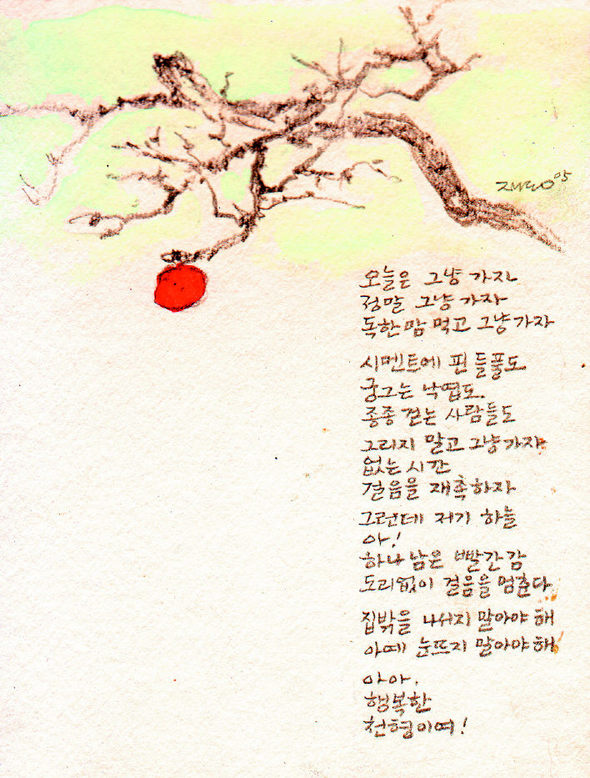 오늘은 그냥 가자
정말 그냥 가자
독한 맘 먹고 그냥 가자
시멘트에 핀 들풀도
궁그는 낙엽도.
종종 걷는 사람들도
그리지 말고 그냥 가자
없는 시간
걸음을 재촉하자
그런데 저기 하늘
아!
하나 남은 빨간 감
도리없이 걸음을 멈춘다
집밖을 나서지 말아야 해
아예 눈뜨지 말아야 해
아아.
행복한
천형이여!